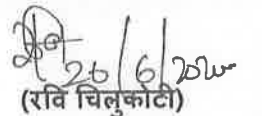 26/6/2020
(रवि चिलुकोटी)